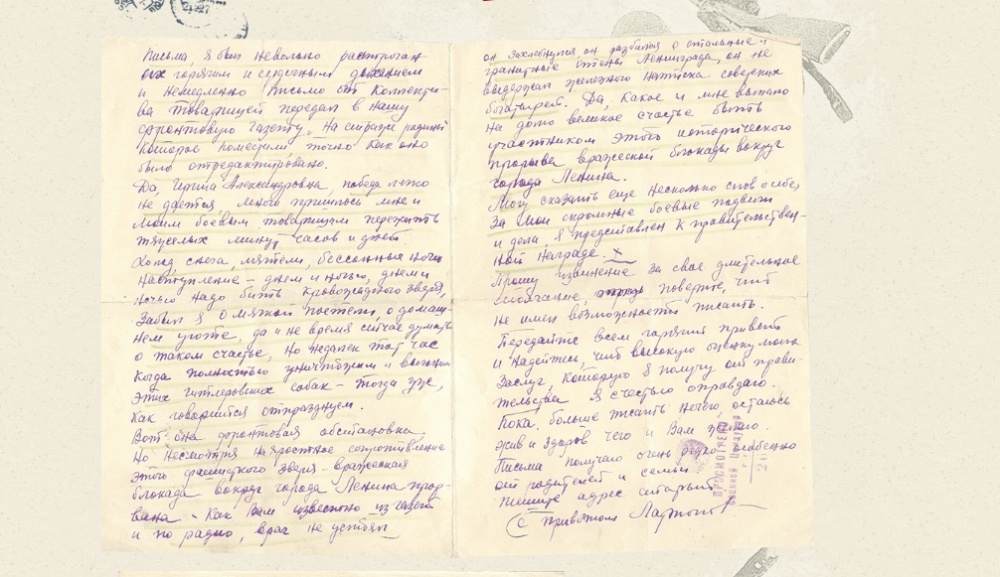 Письма, я был невольно растроган
их горячим и сердечным
и немедленно письмо от коллекти-
ва товарищей передал в нашу
фронтовую газету „На страже родины"
которое поместили точно как оно
было отредактировано.
Да, Ирина Александровна, победа легко
не дается, много пришлось мне и
моим боевым товарищам пережить
тяжелых минут, часов и дней.
Холод снега, мятели, бессонные ночи
наступление – днем и ночью, днем и
ночью надо бить кровожадного зверя,
Забыл я о мягкой постели, о домаш-
нем уюте, да и не время сейчас думать
о таком счастье, но недалек тот час
когда полностью уничтожим и выгоним
этих гитлеровских собак – тогда уже,
как говорится отпразднуем.
Вот она фронтовая обстановка.
Но несмотря на яростное сопротивление
этого фашистского зверя – вражеская
блокада вокруг города Ленина прор-
вана – Как Вам известно из газет
и по радио, враг не устоял
он захлебнулся он разбился о стальные и
гранитные стены Ленинграда, он не
выдержал железного натиска советских
богатырей. Да, какое и мне выпало
на долю великое счастье быть
участником этого исторического
прорыва вражеской блокады вокруг
города Ленина.
Могу сказать еще несколько слов о себе
За мои скромные боевые подвиги
и дела, я представлен к правительствен-
ной награде. х
Прошу извинение за свое длительное
молчание, поверьте, что
не имел возможности писать.
Передайте всем горячий привет
и надейтесь, что высокую оценку моих
заслуг, которую я получу от прави-
тельства я с честью оправдаю.
Пока. больше писать нечего, остаюсь
жив и здоров чего и Вам желаю.
Письма получаю очень редко особенно
от родителей и семьи
Пишите адрес старый
С приветом
ПРОСМОТРЕНО
Военной Цензурой